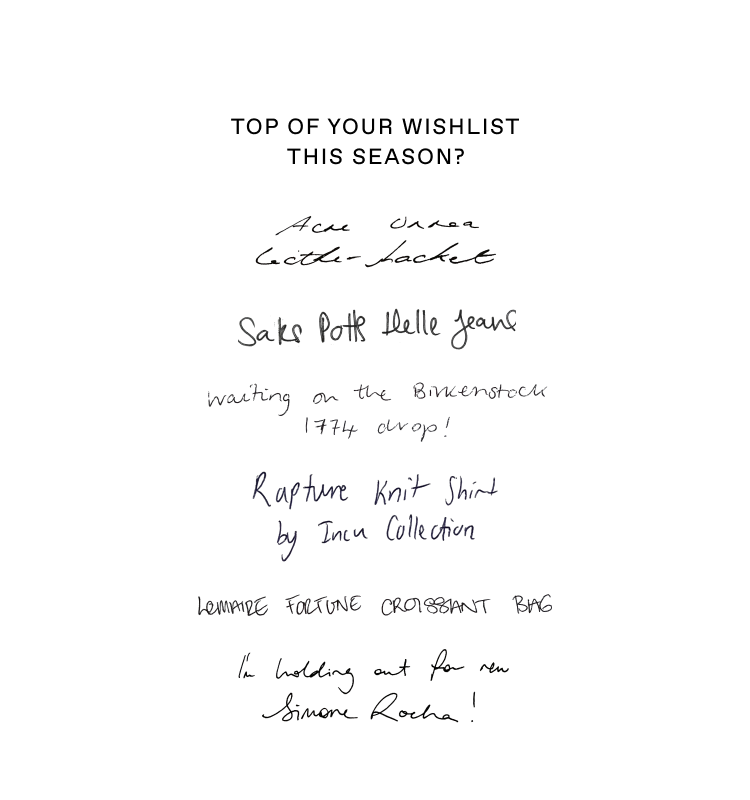 TOP OF YOUR WISHLIST
THIS SEASON?
Acne
Jacket
Saks Potts Helle Jeans
waiting on the Birkenstock
1774 drop!
Rapture Knit Shirt
by Incu Collection
LEMAIRE FORTUNE CROISSANT BAG
I'm holding out for new
Simone Rocha!